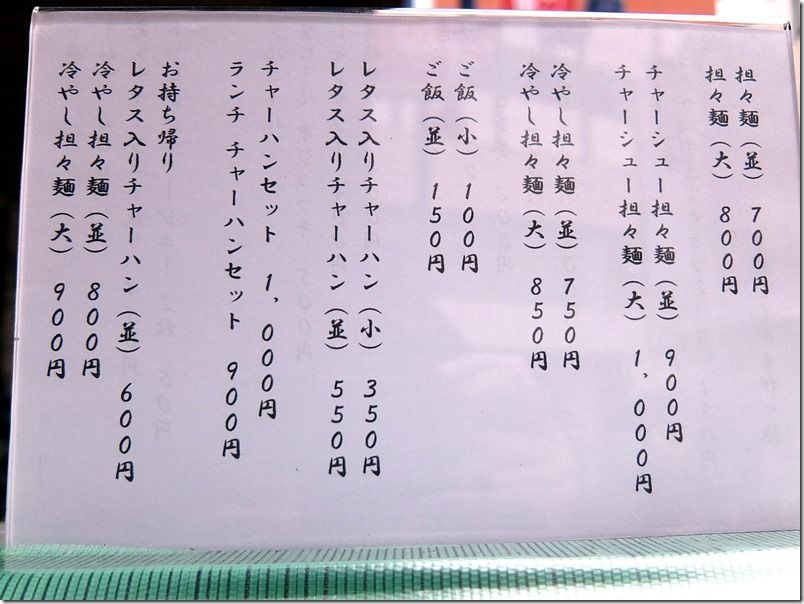 担々麺（並）７００円
担々麺（大）８００円
チャーシュー担々麺（並）９００円
チャーシュー担々麺（大）１，０００円
冷やし担々麺（並）７５０円
冷やし担々麺（大）８５０円
ご飯（小）１００円
ご飯（並）１５０円
レタス入りチャーハン（小）３５０円
レタス入りチャーハン（並）５５０円
チャーハンセット １，０００円
ランチ チャーハンセット ９００円
お持ち帰り
レタス入りチャーハン（並）６００円
冷やし担々麺（並）８００円
冷やし担々麺（大）９００円